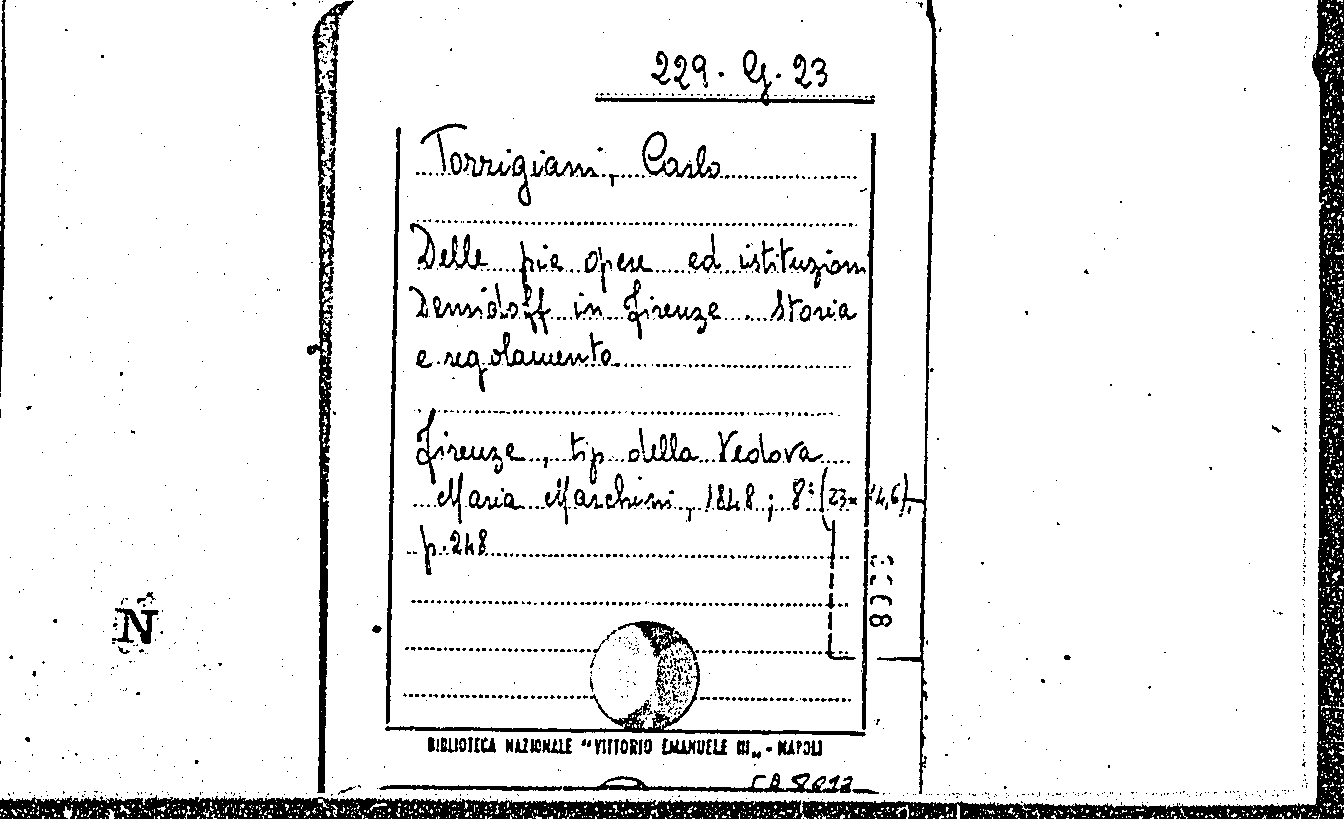 229. G. 23
Torrigiani, Carlo
Delle pie opere ed istituzioni
Demidoff in Firenze. Storia
e regolamento
Firenze, tip della Vedova
Maria Marchini, 1848; 8° (23x14,6),
p. 248
BIBLIOTECA NAZIONALE "VITTORIO EMANUELE III" - NAPOLI
N